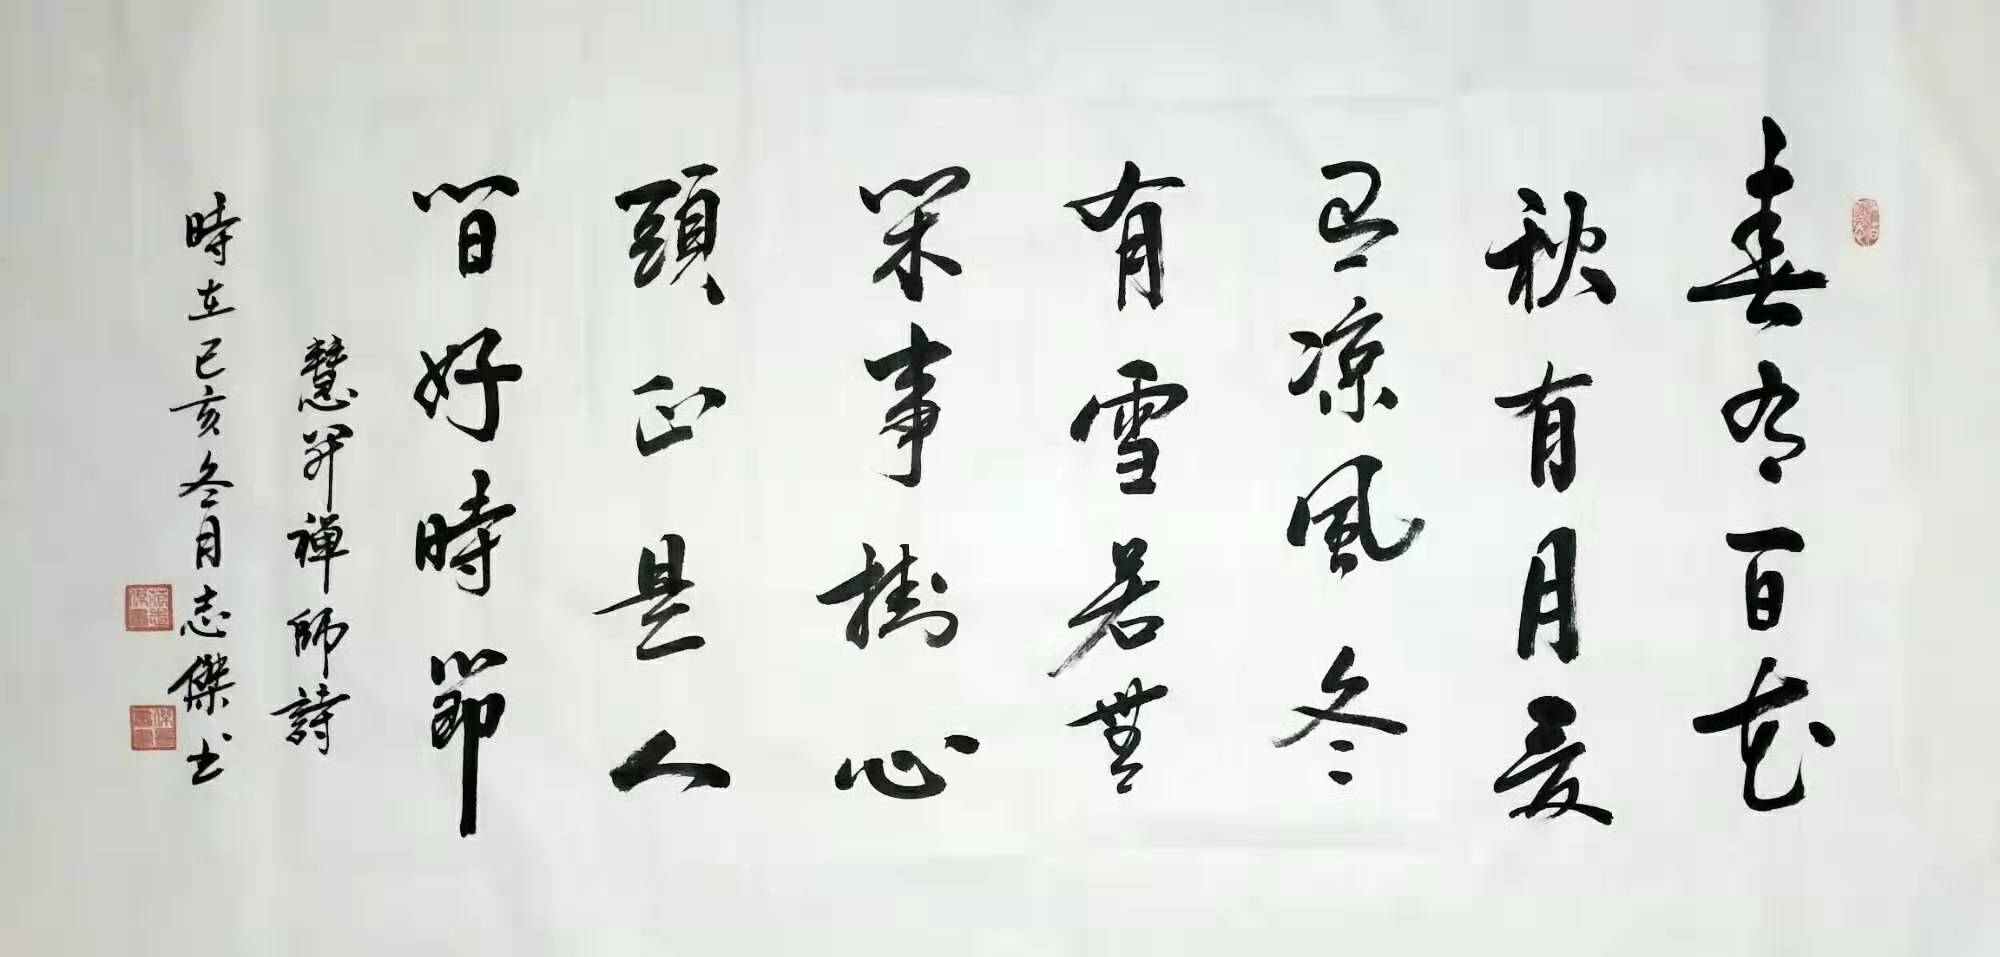 春有百花
秋有月夏
有凉風冬
有雪若無
閑事掛心
頭正是人
間好時節
慧開禪師詩
時在己亥冬月志傑书